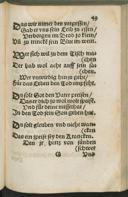 49
Das wir nimer des vergessen/
Gab er vns sein Leib zu essen/
Verborgen im Brod so klein/
Vñ zu trincken sein Blut im wein.
Wer sich wil zu dem Tisch ma=
(chen
Der hab wol acht auff sein sa=
(chen.
Wer vnwirdig hinzu geht/
Für das Leben den Tod empfeht.
Du solt Gott den Vater preisen/
Das er dich so wol wolt speisen/
Vnd für deine missethat/
In den Tod sein Son geben hat.
Du solt glauben vnd nicht wan=
(cken
Das ein speise sey den Krancken.
Den jr hertz von sünden
(schwer
G